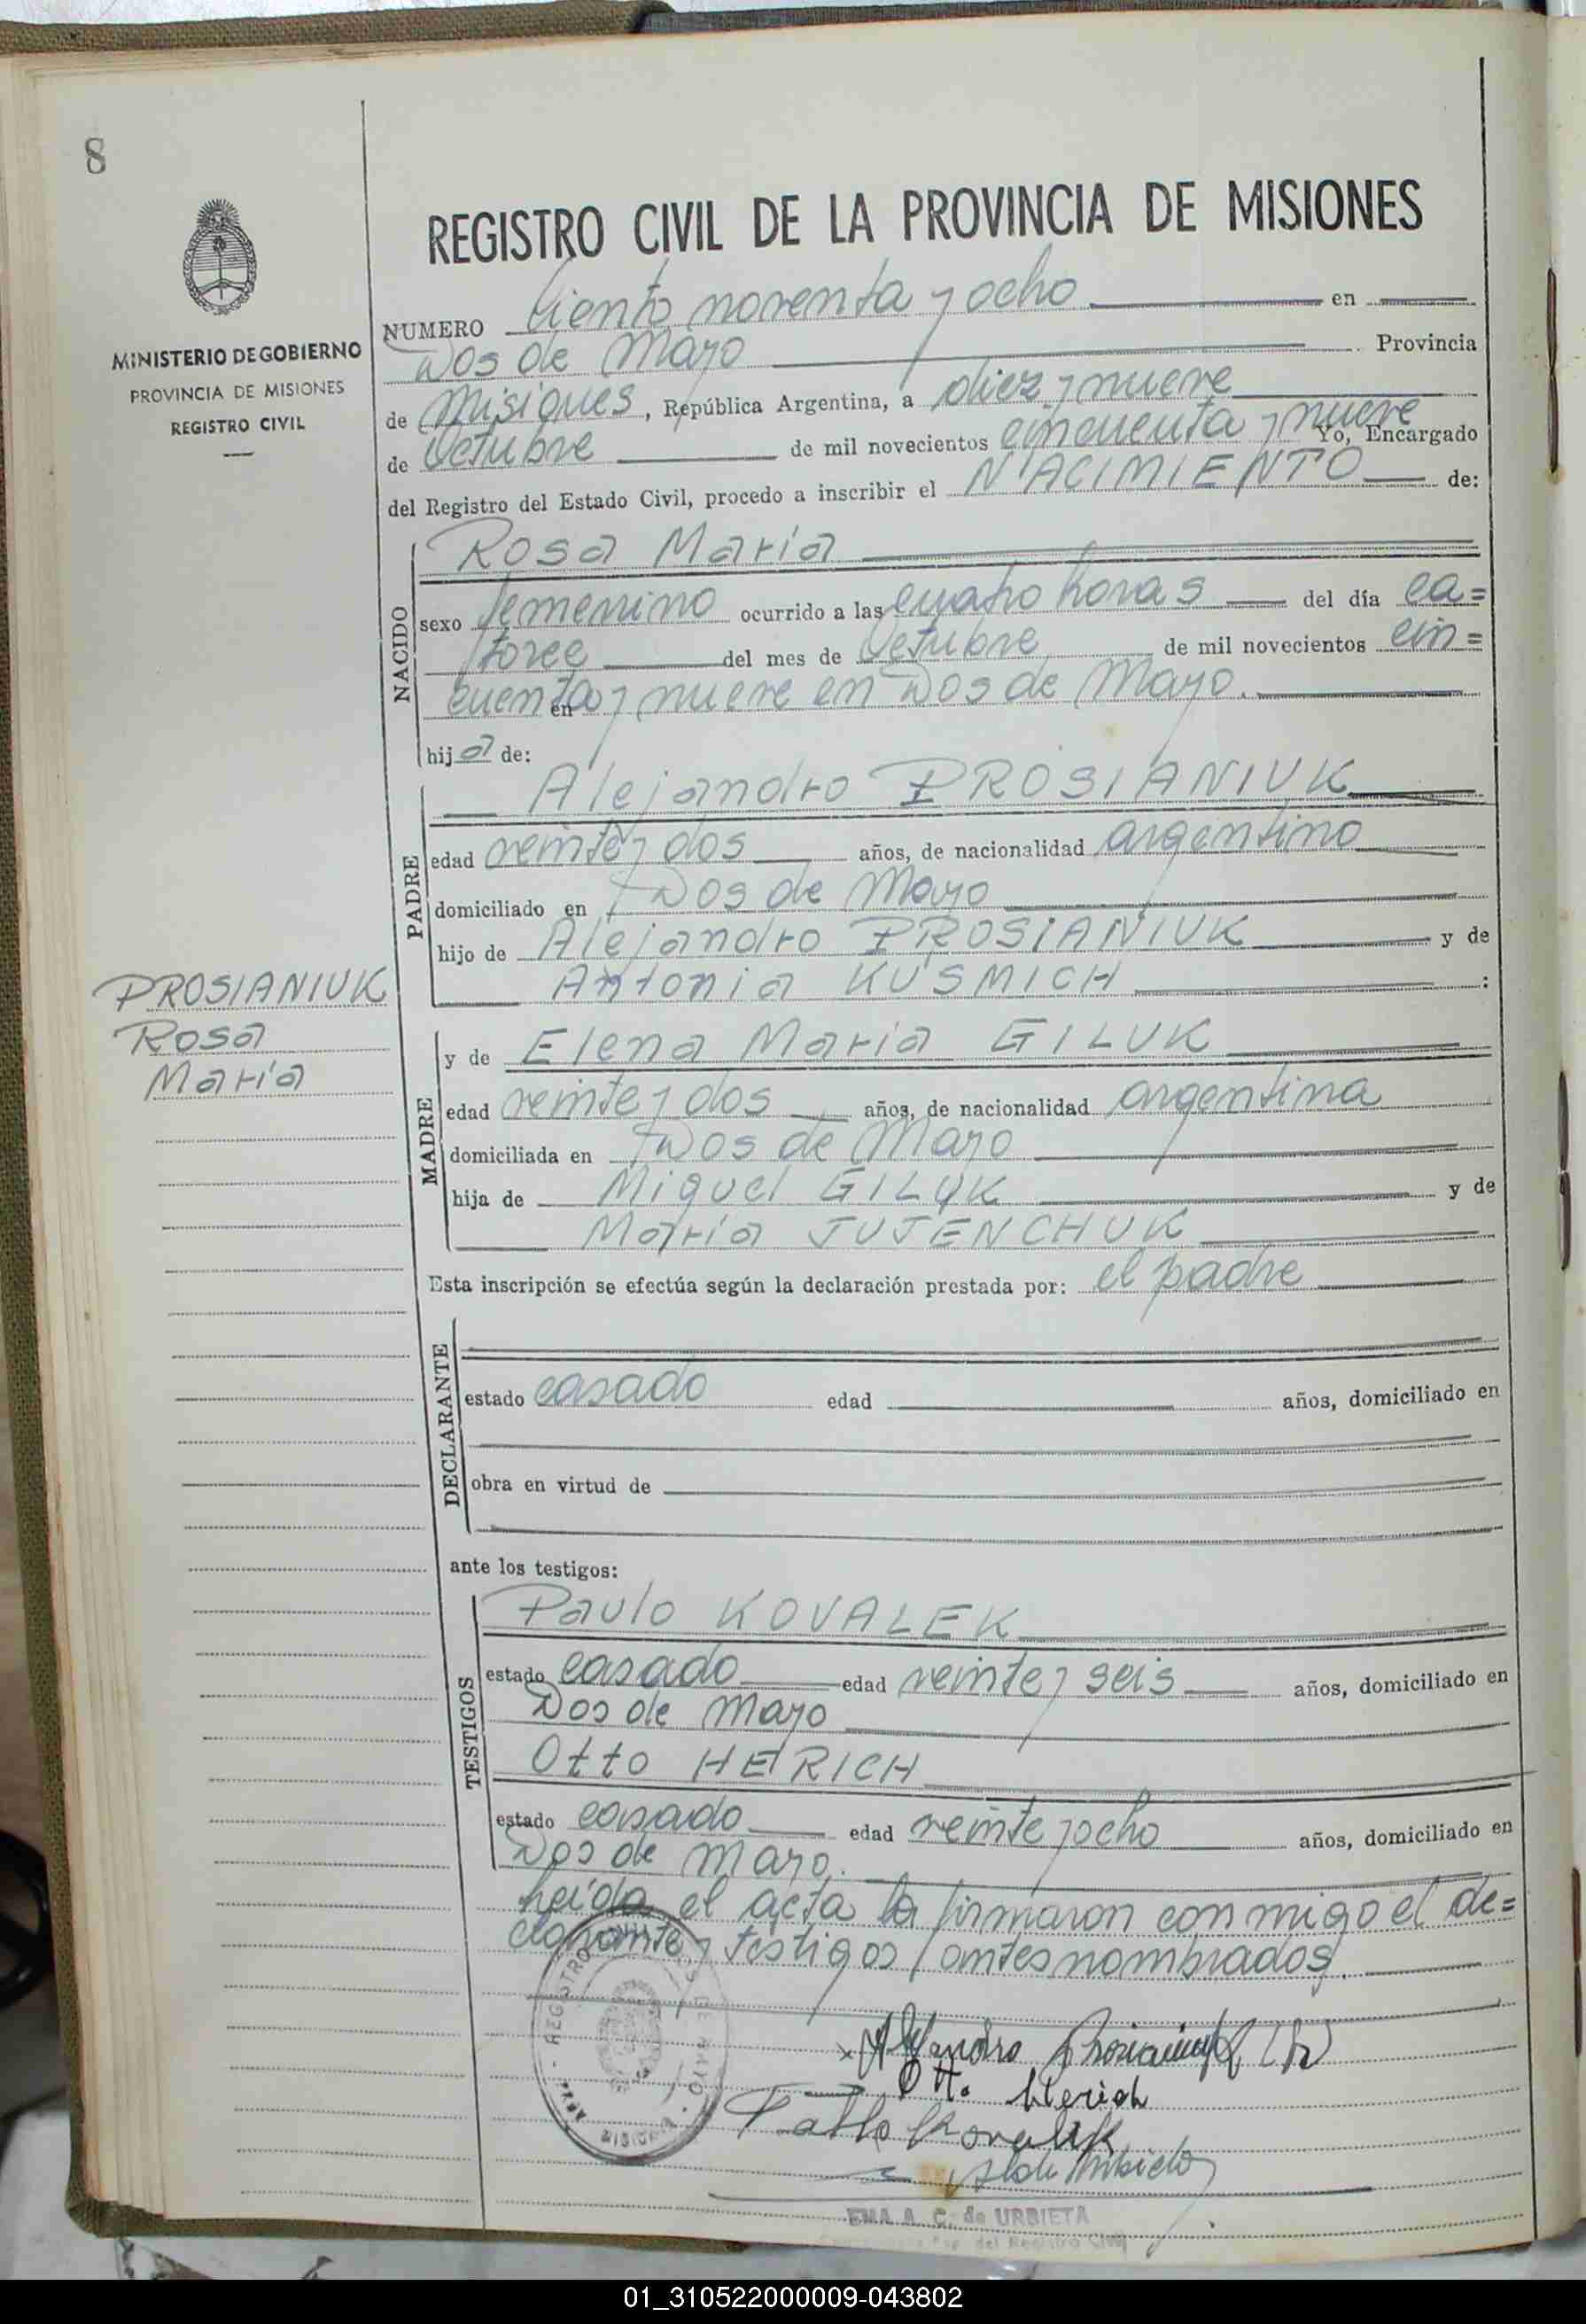 8
REGISTRO CIVIL DE LA PROVINCIA DE MISIONES
MINISTERIO DE GOBIERNO
PROVINCIA DE MISIONES
REGISTRO CIVIL
NUMERO Ciento noventa y ocho en
Dos de Mayo Provincia
de Misiones, República Argentina, a diez y nueve
de Octubre de mil novecientos cincuenta y nueve Yo, Encargado
del Registro del Estado Civil, procedo a inscribir el NACIMIENTO de:
NACIDO
Rosa María
sexo femenino ocurrido a las cuatro horas del día ca=
torce del mes de Octubre de mil novecientos cin=
cuenta y nueve en Dos de Mayo.
en
hija de:
PADRE
Alejandro PROSIANIUK
edad veinte y dos años, de nacionalidad argentino
domiciliado en Dos de Mayo
hijo de Alejandro PROSIANIUK y de
Antonia KUSMICH :
PROSIANIUK
Rosa
María
MADRE
y de Elena María GILUK
edad veinte y dos años, de nacionalidad argentina
domiciliada en Dos de Mayo
hija de Miguel GILUK y de
María JUJENCHUK
Esta inscripción se efectúa según la declaración prestada por: el padre
DECLARANTE
estado casado edad años, domiciliado en
obra en virtud de
ante los testigos:
TESTIGOS
Paulo KOVALEK
estado casado edad veinte y seis años, domiciliado en
Dos de Mayo
Otto HERICH
estado casado edad veinte y ocho años, domiciliado en
Dos de Mayo.
Leída el acta la firmaron conmigo el de=
clarante y testigos antes nombrados.
REGISTRO
MISIONES
x Alejandro Prosianiuk (h)
Ott. Herich
Pablo Kovalek
EMA A. C. de URBIETA
del Registro Civil
01_310522000009-043802